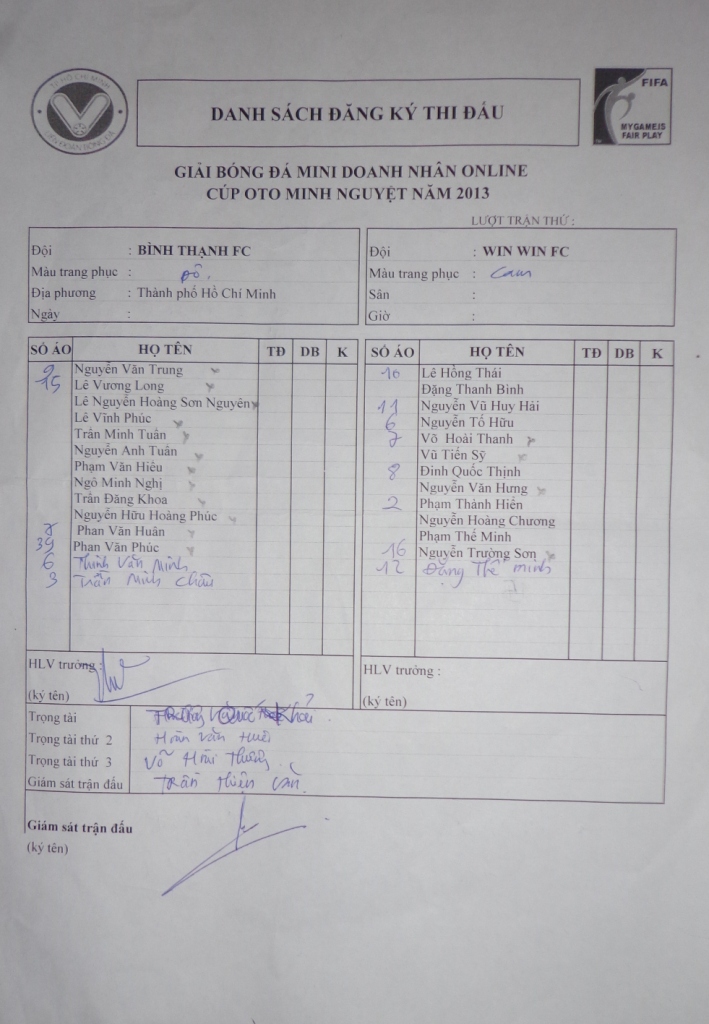 TP. HỒ CHÍ MINH
LIÊN ĐOÀN BÓNG ĐÁ
DANH SÁCH ĐĂNG KÝ THI ĐẤU
FIFA
MY GAME IS
FAIR PLAY
GIẢI BÓNG ĐÁ MINI DOANH NHÂN ONLINE
CÚP OTO MINH NGUYỆT NĂM 2013
LƯỢT TRẬN THỨ :
Đội : BÌNH THẠNH FC
Màu trang phục :
Địa phương : Thành phố Hồ Chí Minh
Ngày :
Đội : WIN WIN FC
Màu trang phục : Cam
Sân :
Giờ :
SỐ ÁO HỌ TÊN TĐ DB K
9 Nguyễn Văn Trung
15 Lê Vương Long
Lê Nguyễn Hoàng Sơn Nguyên
Lê Vĩnh Phúc
Trần Minh Tuấn
Nguyễn Anh Tuấn
Phạm Văn Hiếu
Ngô Minh Nghị
Trần Đăng Khoa
Nguyễn Hữu Hoàng Phúc
7 Phan Văn Huân
39 Phan Văn Phúc
6 Thịnh Văn Minh
3 Trần Minh Châu
SỐ ÁO HỌ TÊN TĐ DB K
10 Lê Hồng Thái
Đặng Thanh Bình
11 Nguyễn Vũ Huy Hải
6 Nguyễn Tố Hữu
7 Võ Hoài Thanh
Vũ Tiến Sỹ
8 Đinh Quốc Thịnh
Nguyễn Văn Hưng
2 Phạm Thành Hiển
Nguyễn Hoàng Chương
Phạm Thế Minh
16 Nguyễn Trường Sơn
12 Đặng Thế Minh
HLV trưởng :
(ký tên)
HLV trưởng :
(ký tên)
Trọng tài
Trọng tài thứ 2 Văn
Trọng tài thứ 3 Võ Hoài
Giám sát trận đấu Trần Thiện
Giám sát trận đấu
(ký tên)